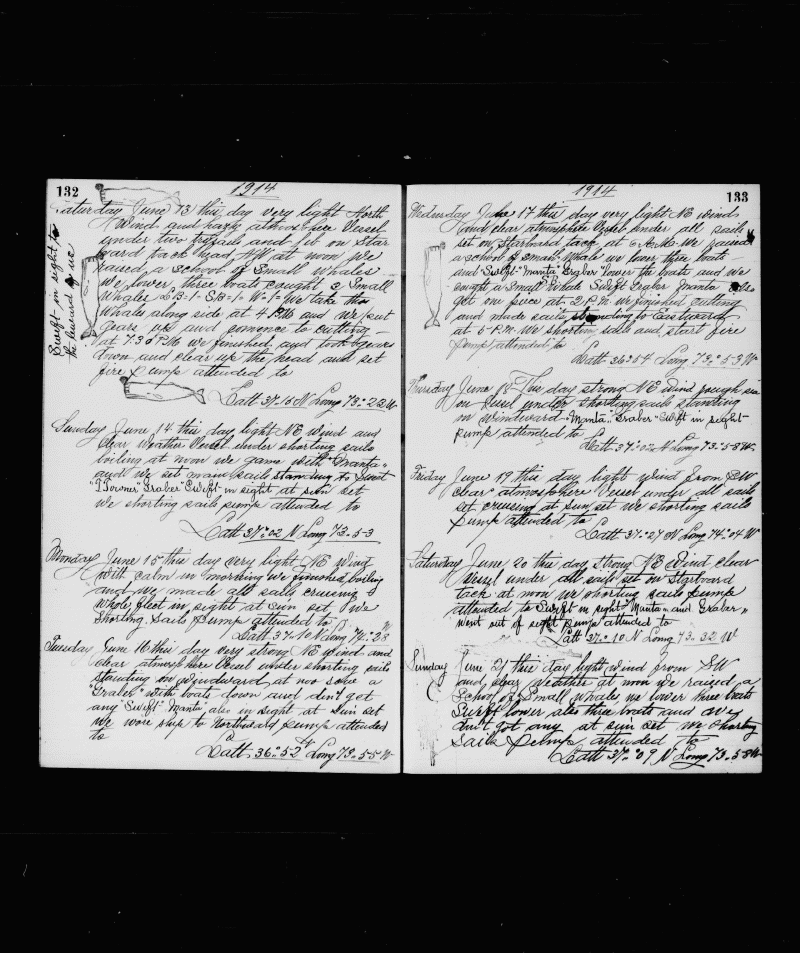 132
1914
Saturday June 13 this day very light North
Wind and hazy atmosphere Vessel
under two trysails and jib on Star
board tack head NW at noon We
raised a school of Small Whales
We lower three boats caught 3 Small
Whales LB=1- SB=1= W=1= We take the
Whales along side at 4 PM and we put
gears up and comence to cutting
at 7.30 PM we finished and took gears
down and clear up the head and set
fire Pump attended to
Latt 37.15 N Long 73=22 W
Swift in sight to
the leeward of us
Sunday June 14 this day light NE Wind and
Clear Weather Vessel under shorting sails
boiling at noon we game with "Manta"
and We set main sails standing to
"T Towner" Graber "Swift" in sight at sun set
We shorting sails pump attended to
Latt 37=02 N Long 73.5-3
Monday June 15 this day very light NE Wind
With calm in morning We finished boiling
and we made all sails cruising
Whole fleet in sight at sun set, We
Shorting Sails Pump attended to
Latt 37-10 N Long 74=28 W
Tuesday June 16 this day very strong NE Wind and
clear atmosphere Vessel under shorting sails
standing in windward, at noo saw a
"Graber" with boats down and din't get
any "Swift" "Manta" also in sight at Sun set
We wore ship to Northward pump attended
to
Latt 36=52 N Long 73=55 W
1914
133
Wednesday June 17 this day very light NE winds
And clear atmosphere Vessel under all sail
set on Starboard tack at 6 A.M. We raised
a school of small Whale we lower three boats
and "Swift" "Manta" Graber lower the boats and we
caught a Small Whale Swift Graber Manta also
got one piece at 2 P.M. we finished cutting
and made sails standing to Eastward
at 5 P.M. We shorting sails and start fire
pump attended to
Latt 36=54 Long 73=53 W
Thursday June 18 This day strong NE wind rough sea
on Vessel under shorting sails standing
in Windward "Manta" Graber "Swift in sight
pump attended to
Latt 37=02 N Long 73=58 W
Friday June 19 this day light Wind from SW
clear atmosphere Vessel under all sails
set cruising at sun set we shorting sails
Pump attended to
Latt 37=27 N Long 74=04 W
Saturday June 20 this day strong NE Wind clear
Vessel under all sails set on Starboard
tack at noon we shorting sails pump
attended to Swift in sight "Manta" and Graber"
went out of sight pump attended to
Latt 37=10 N Long 73.32 W
Sunday June 21 this day light wind from SW
and clear weather at noon we raised a
School of Small Whales we lower three boats
Swift lower also three boats and we
din't got any at sun set we shorting
sails Pump attended to
Latt 37=09 N Long 73.58 W